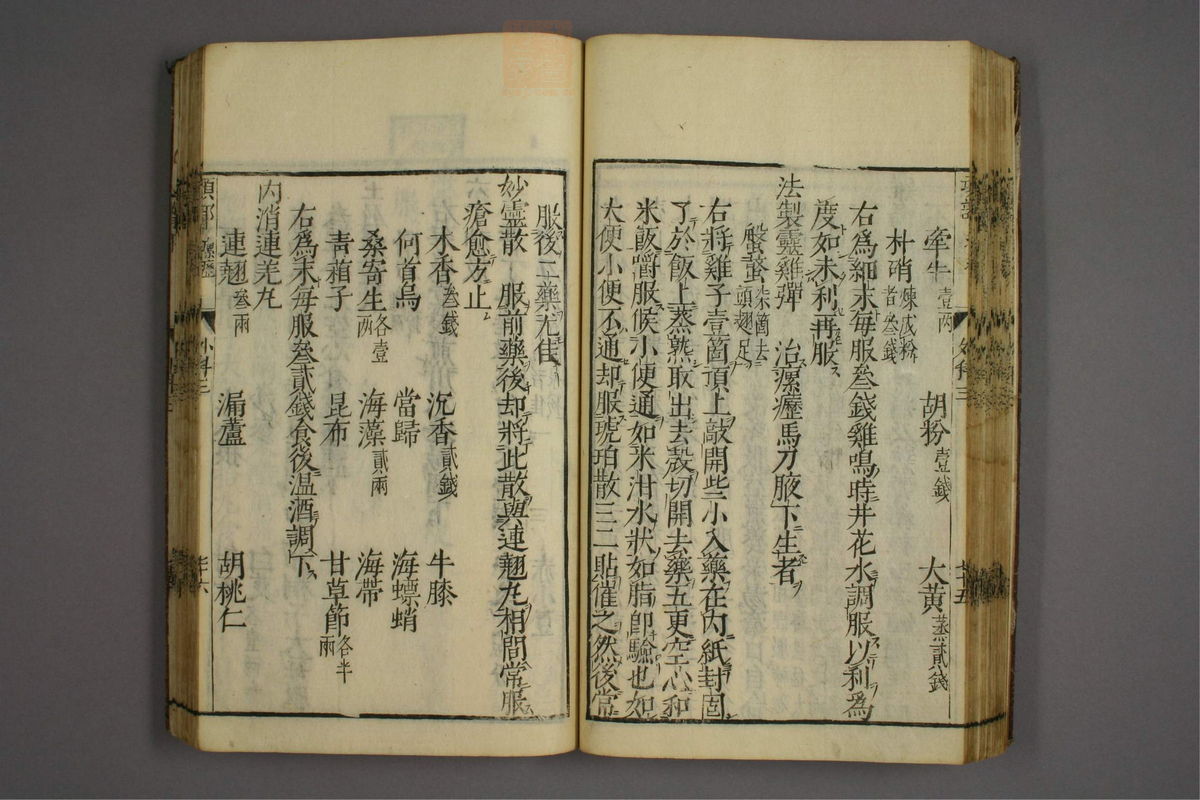 牽牛壹兩 胡粉壹錢 大黃蒸貳錢
朴硝煉成粉者叁錢
右爲細末每服叁錢雞鳴時井花水調服以利爲
度如未利再服
法製靈雞彈 治瘰癧馬刀腋下生者
盤蝥柒箇去頭翅足
右將雞子壹箇頂上敲開些小入藥在內紙封固
了於飯上蒸熟取出去殼切開去藥五更空心和
米飯嚼服候小便通如米泔水狀如脂卽驗也如
大便小便不通却服琥珀散三二貼催之然後常
服後二藥尤佳
妙靈散 服前藥後却將此散與連翹丸相間常服
瘡愈方止
木香叁錢 沉香貳錢 牛膝
何首烏 當歸 海螵蛸
桑寄生各壹兩 海藻貳兩 海帶
青葙子 昆布 甘草節各半兩
右爲末每服叁貳錢食後温酒調下
內消連羌丸
連翹叁兩 漏蘆 胡桃仁
項部 瘰癧 外科三 七十六